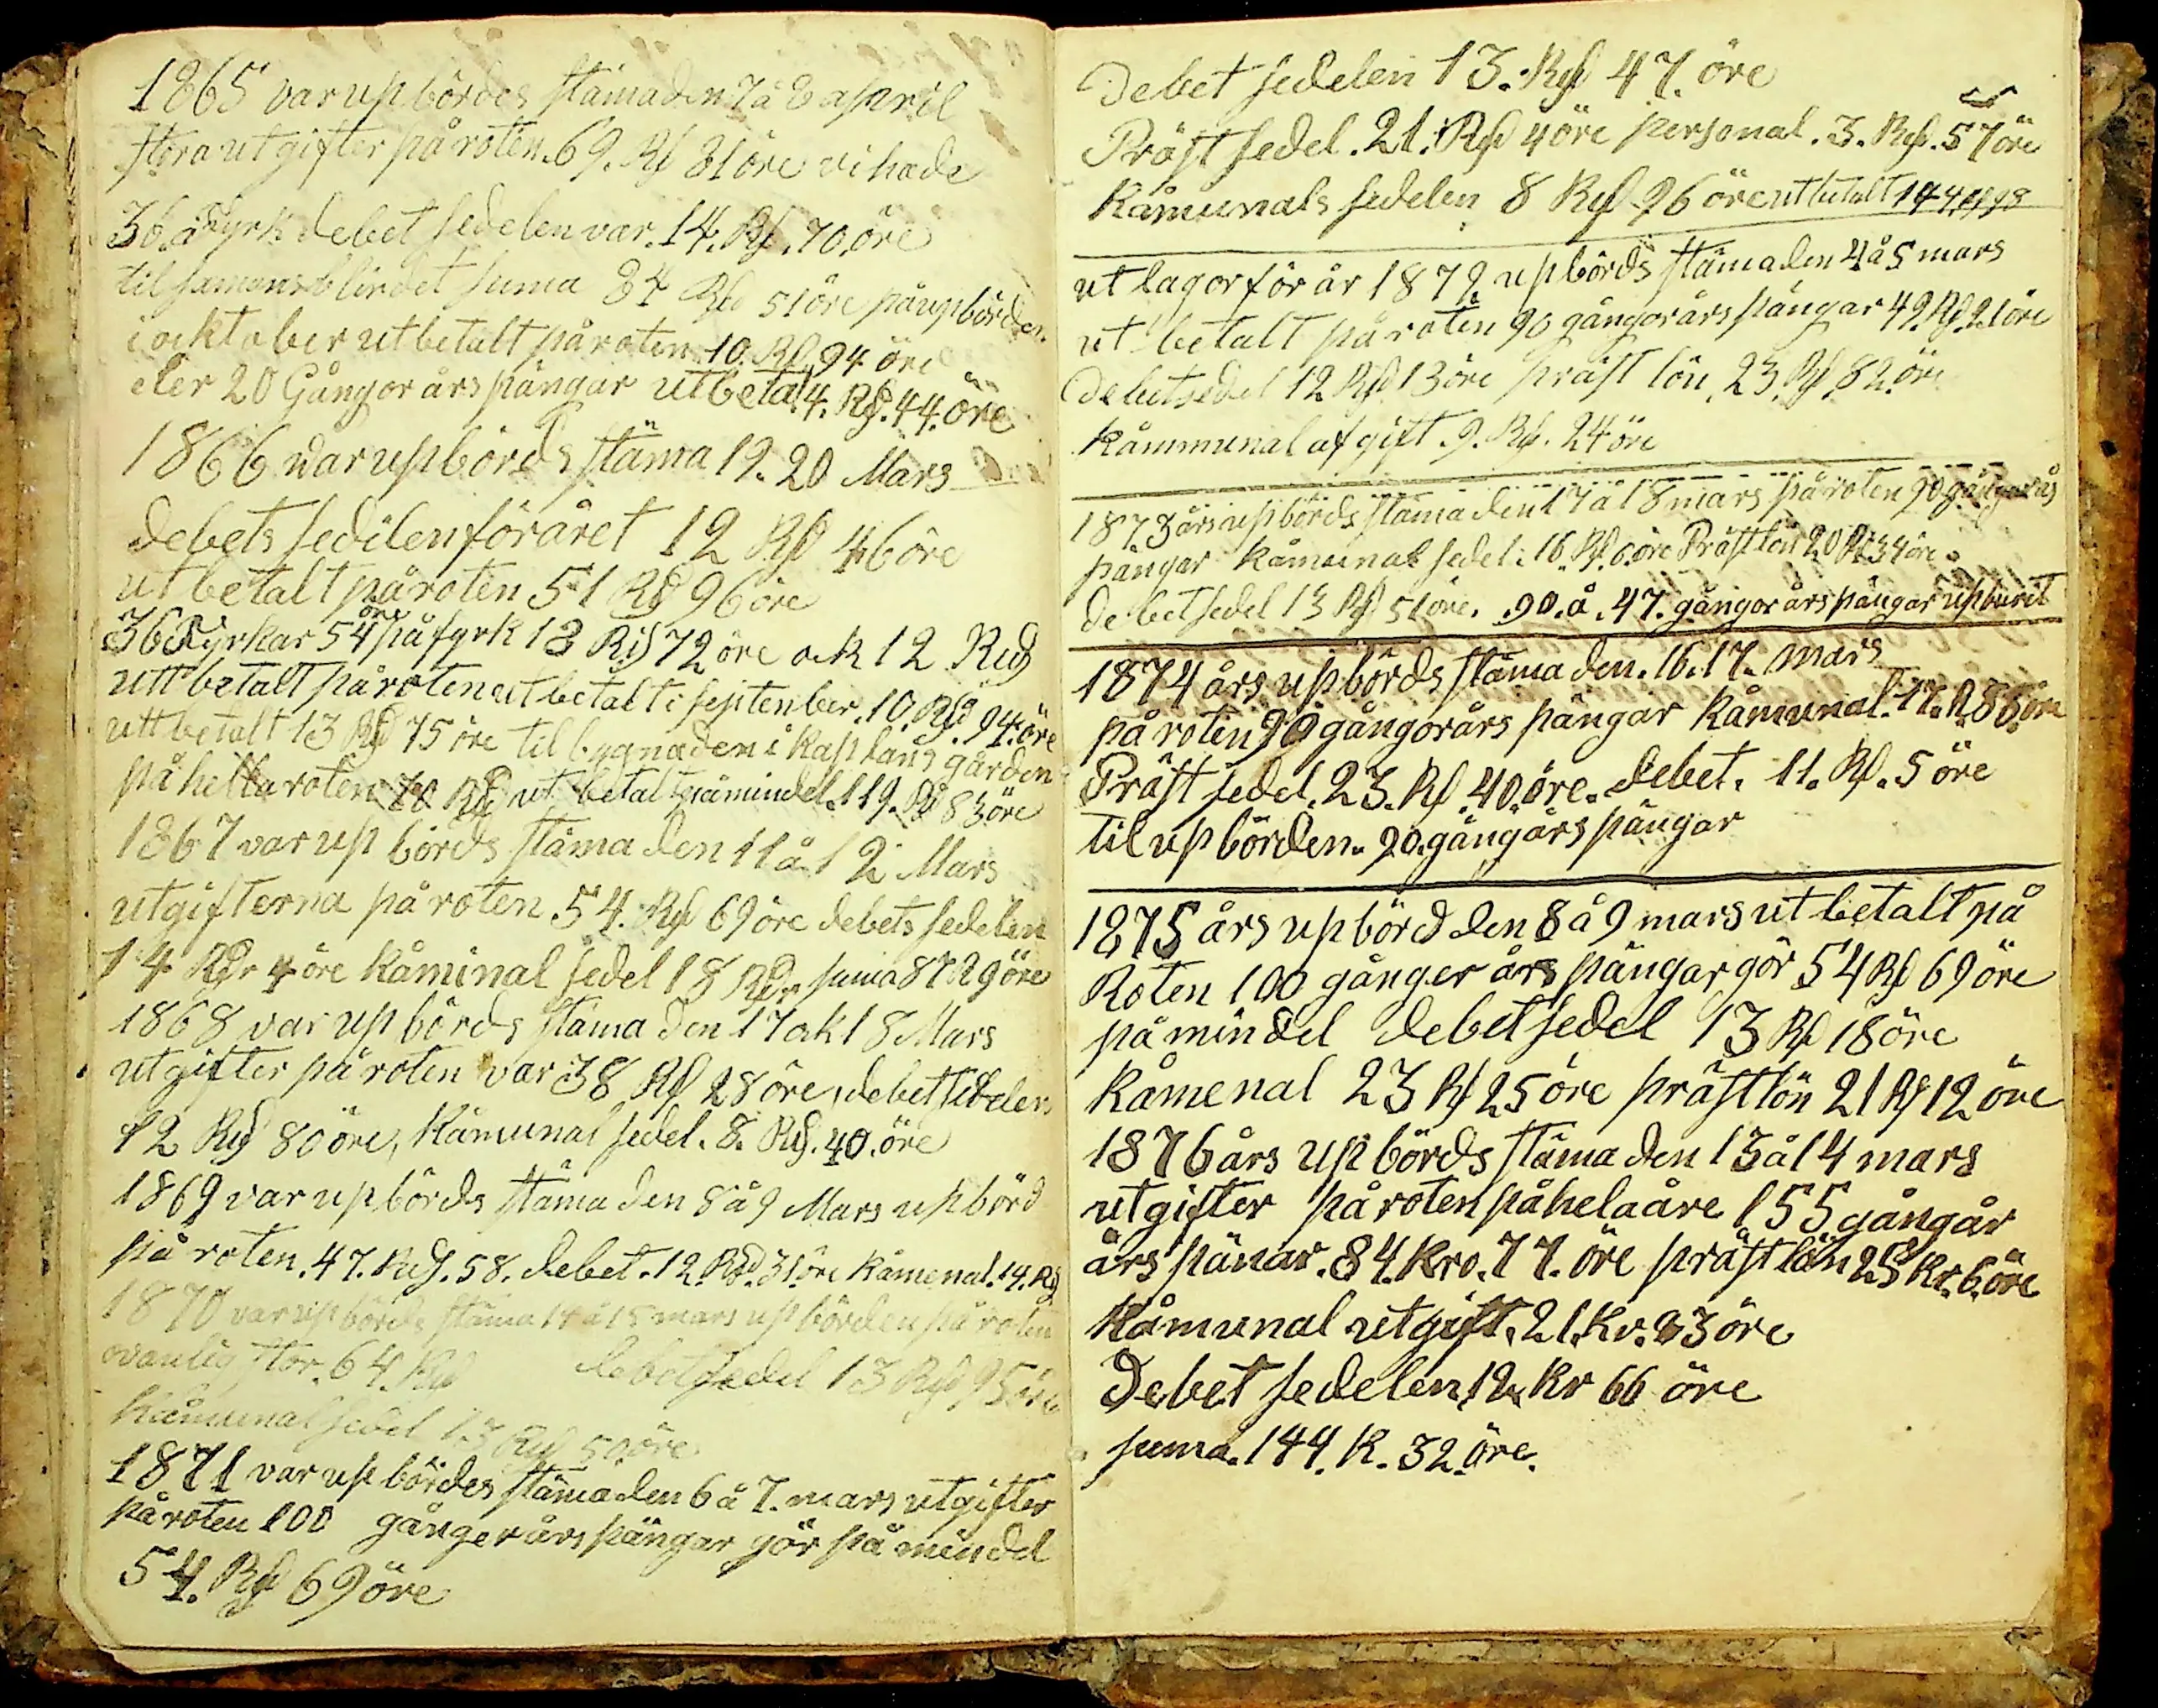 1865 var upbördes stämaden 7 å 8 april
stora utgifter på roten. 69. Rd 81 öre vi hade
36. a fyrk debet sedelen var. 14. Rd. 70. öre
tilsamans blir det suma 84 Rd 51 öre på upbörden.
i ocktober utbetalt på roten 10. Rd. 94 öre
eler 20 Gångor årspängar utbetal 4. Rd. 44. öre
1866 var upbörds stäma 19. 20 Mars
debets sedelen för året 12 Rd 46 öre
ut betalt på roten 51 Rd 96 öre
36 Fyrkar 54 öre på fyrk 13 Rd 72 öre ock 12 Rd
utt betalt på roten utbetalt i september. 10. Rd. 94. öre
utt betalt 13 Rd 75 öre til bygnaden i kaplans gården
på hella roten 70 Rd ut betalt på min del. 119. Rd 83 öre
1867 var up börds stäma den 11 å 12 Mars
utgifterna på roten. 54. Rd 69 öre debets sedelen
14 Rdr 4 öre Kåminal sedel 18 Rdr suma 87 29 öre
1868 var up börds stäma den 17 ok 18 Mars
utgifter på roten var 38 Rd 28 öre, debet sedelen
12 Rd 80 öre, Kåmunal sedel. 8. Rd. 40. öre
1869 var upbörds stäma den 8 å 9 Mars upbörd
på roten. 47. Rd. 58. debet. 12. Rd. 31 öre Kåmenal. 14. Rd
1870 var up börds stäma 14 å 15 mars up börden på roten
ovanlig stor. 64. Rd debetsedel 13 Rd 95 öre
Kåmunal sedel 13 Rd 50 öre
1871 var up bördes stäma den 6 å 7. mars utgifter
på roten 100 gånger årspängar gör på min del
54. Rd 69 öre
Debet sedelen 13. Rd 47. öre
Präst sedel. 21. Rd 4 öre personal. 3. Rd. 57 öre
Kåmunals sedelen 8 Rd 96 öre utbetalt
ut lagor för år 1872 upbörds stäma den 4 å 5 mars
ut betalt på roten 90 gångor års pängar 49. Rd. 21 öre
Debetsedel 12 Rd 13 öre präst lön, 23. Rd 82. öre
Kåmmunal afgift. 9. Rd. 24 öre
1873 års upbörds stäma den 17 a 18 mars på roten 90 gångor års
pängar Kåmunal sedel: 16. Rd. 6. öre Präst lön 20 Rd 34 öre
debetsedel 13 Rd 51 öre. 90. å. 47. gångor års pängar upburit
1874 års upbörds stäma den. 16. 17. mars
på roten 90 gångorårs pängar Kåmunal. 17. R 88 öre
Präst sedel. 23. Rd. 40. öre. debet. 11. Rd. 5 öre
til upbörden. 90. gångårs pängar
1875 års upbörd den 8 å 9 mars ut betalt på
Roten 100 gånger års pängar gör 54 Rd 69 öre
på min del debetsedel 13 Rd 18 öre
Kåmenal 23 Rd 25 öre prästlön 21 Rd 12 öre
1876 års up börds stäma den 13 å 14 mars
utgifter på roten på hela åre 155 gångår
års pänar. 84. Kro. 77. öre prästlön 25 Kr. 6. öre
Kåmunal utgift. 21. Kr. 83 öre
Debet sedelen 12. Kr 66 öre
suma. 144. K. 32. öre.